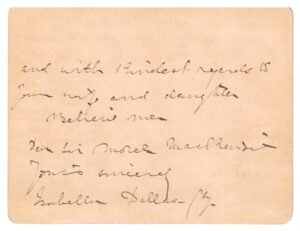 and with Kindest regards to
your wife, and daughter
Believe me
Dear Sir Morell Mackenzie
Yours sincerely
Isabella Dallas-Glyn